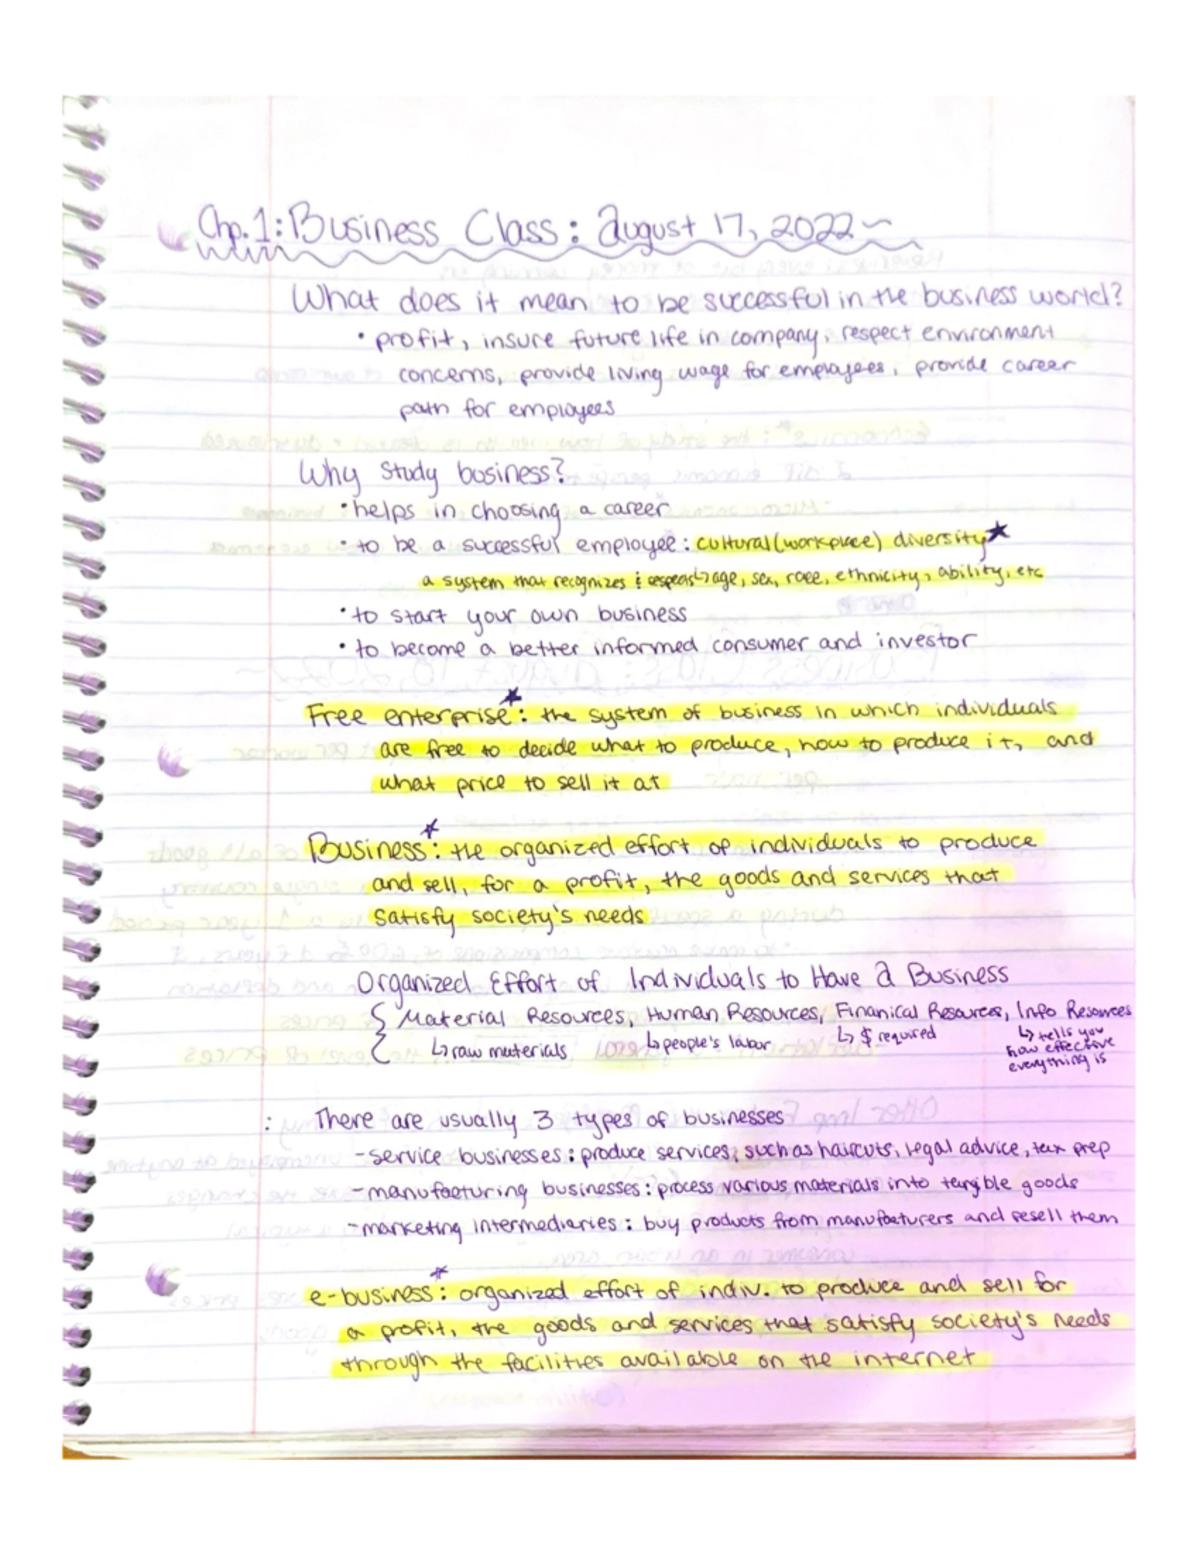 Chp. 1: Business Class: August 17, 2022~
What does it mean to be successful in the business world?
• profit, insure future life in company, respect environment
concerns, provide living wage for employees, provide career
path for employees
Why study business?
• helps in choosing a career
• to be a successful employee: cultural (workplace) diversity★
a system that recognizes & respects↳age, sex, race, ethnicity, ability, etc
• to start your own business
• to become a better informed consumer and investor
Free enterprise★: the system of business in which individuals
are free to decide what to produce, how to produce it, and
what price to sell it at
Business★: the organized effort of individuals to produce
and sell, for a profit, the goods and services that
satisfy society's needs
Organized Effort of Individuals to Have a Business
{ Material Resources, Human Resources, Finanical Resources, Info Resources
↳raw materials ↳people's labor ↳ $ required ↳ tells you
how effective
everything is
: There are usually 3 types of businesses
- service businesses: produce services, such as haircuts, legal advice, tax prep
- manufacturing businesses: process various materials into tangible goods
- marketing intermediaries: buy products from manufacturers and resell them
e-business★: organized effort of indiv. to produce and sell for
a profit, the goods and services that satisfy society's needs
through the facilities available on the internet